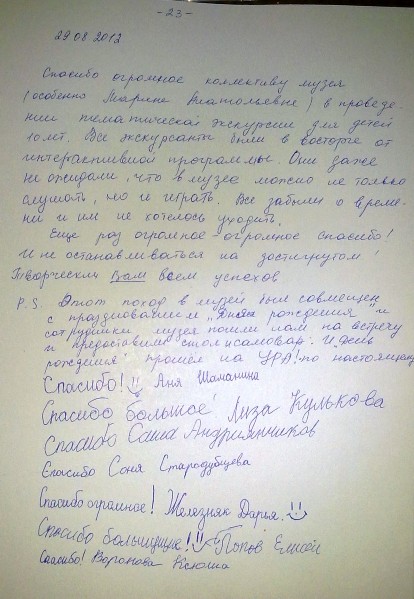 -23-
29.08.2012
Спасибо огромное коллективу музея
(особенно Марине Анатольевне) в проведе-
нии тематической экскурсии для детей
10 лет. Все экскурсанты были в восторге от
интерактивной программы. Они даже
не ожидали, что в музее можно не только
слушать, но и играть. Все забыли о време-
ни и им не хотелось уходить.
Еще раз огромное-огромное спасибо!
И не останавливаться на достигнутом!
Творческих Вам всем успехов
P.S. Этот поход в музей был совмещен
с празднованием „Дня рождения" и
сотрудники музея пошли нам на встречу
и предоставили стол и самовар. И день
рождения прошел на УРА! по настоящему
Спасибо! Аня Шаманина
Спасибо большое! Лиза Кулькова
Спасибо Саша Андриянчиков
Спасибо Соня Стародубцева
Спасибо огромное! Железняк Дарья.
Спасибо большущее! Попов Елисей
Спасибо! Воронова Ксюша